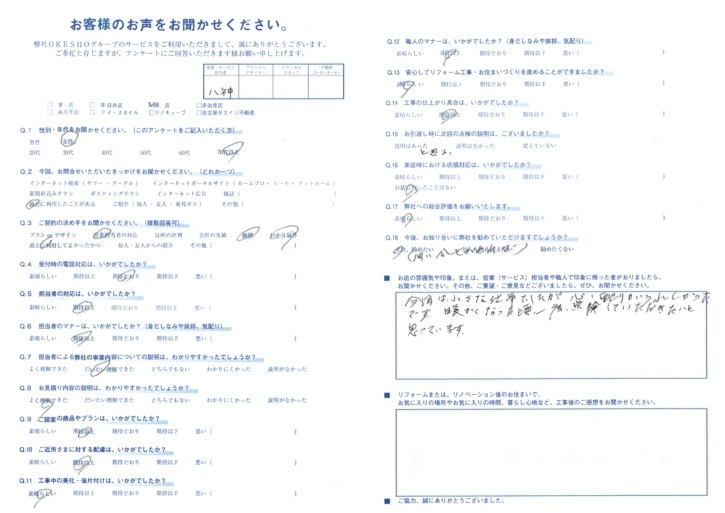 お客様のお声をお聞かせください。
弊社OKESHOグループのサービスをご利用いただきまして、誠にありがとうございます。
ご多忙と存じますが、アンケートにご回答いただきます様お願い申し上げます。
営業・サービス担当者 プランナーデザイナー テクニカルスタッフ 不動産コーディネーター
八神
東店 春日井店 緑店 多治見店
長久手店 アイ・スタイル リノキューブ 名古屋ＲエイジR不動産
Q.1 性別・年代をお聞かせください。（このアンケートをご記入いただく方）
男性 女性
20代 30代 40代 50代 60代 70代以上
Q.2 今回、お問合せいただいたきっかけをお聞かせください。（どれか一つ）
インターネット検索（ヤフー・グーグル） インターネットポータルサイト（ホームプロ・スーモ・アットホーム）
新聞折込みチラシ ポスティングチラシ インターネット広告 雑誌（ ）
過去に利用したことがある ご紹介（知人・友人・東邦ガス） その他（ ）
Q.3 ご契約の決め手をお聞かせください。（複数回答可）
プラン・デザイン 営業担当者の対応 近所の評判 会社の実績 価格 わかり易さ
過去に利用してよかったから 知人・友人からの紹介 その他（ ）
Q.4 受付時の電話対応は、いかがでしたか？
素晴らしい 期待以上 期待どおり 期待以下 悪い（ ）
Q.5 担当者の対応は、いかがでしたか？
素晴らしい 期待以上 期待どおり 期待以下 悪い（ ）
Q.6 担当者のマナーは、いかがでしたか？（身だしなみや挨拶、気配り）
素晴らしい 期待以上 期待どおり 期待以下 悪い（ ）
Q.7 担当者による弊社の事業内容についての説明は、わかりやすかったでしょうか？
よく理解できた だいたい理解できた どちらでもない わかりにくかった 説明がなかった
Q.8 お見積り内容の説明は、わかりやすかったでしょうか？
よく理解できた だいたい理解できた どちらでもない わかりにくかった 説明がなかった
Q.9 提案の商品やプランは、いかがでしたか？
素晴らしい 期待以上 期待どおり 期待以下 悪い（ ）
Q.10 ご近所さまに対する配慮は、いかがでしたか？
素晴らしい 期待以上 期待どおり 期待以下 悪い（ ）
Q.11 工事中の美化・後片付けは、いかがでしたか？
素晴らしい 期待以上 期待どおり 期待以下 悪い（ ）
Q.12 職人のマナーは、いかがでしたか？（身だしなみや挨拶、気配り）
素晴らしい 期待以上 期待どおり 期待以下 悪い（ ）
Q.13 安心してリフォーム工事・お住まいづくりを進めることができましたか？
素晴らしい 期待以上 期待どおり 期待以下 悪い（ ）
Q.14 工事の仕上がり具合は、いかがでしたか？
素晴らしい 期待以上 期待どおり 期待以下 悪い（ ）
Q.15 お引渡し時に次回の点検の説明は、ございましたか？
説明はあった 説明はなかった 覚えていない
と思う
Q.16 来店時における店頭対応は、いかがでしたか？
素晴らしい 期待以上 期待どおり 期待以下 悪い（ ）
お店に行ったことはない
Q.17 弊社への総合評価をお願いいたします。
素晴らしい 期待以上 期待どおり 期待以下 悪い（ ）
Q.18 今後、お知り合いに弊社を勧めていただけますでしょうか？
勧めたい 勧めたくない
■ お店の雰囲気や印象、または、営業（サービス）担当者や職人で印象に残った者がおりましたら、
お聞かせください。その他、ご要望・ご意見などございましたら、ぜひ、お聞かせください。
今回は小さな仕事でしたが 心い配りがうれしかった
です 暖かくなった頃 点検していただきたいと
思っています
■ リフォームまたは、リノベーション後のお住まいで、
お気に入りの場所やお気に入りの時間、暮らし心地など、工事後のご感想をお聞かせください。
■ ご協力、誠にありがとうございました。